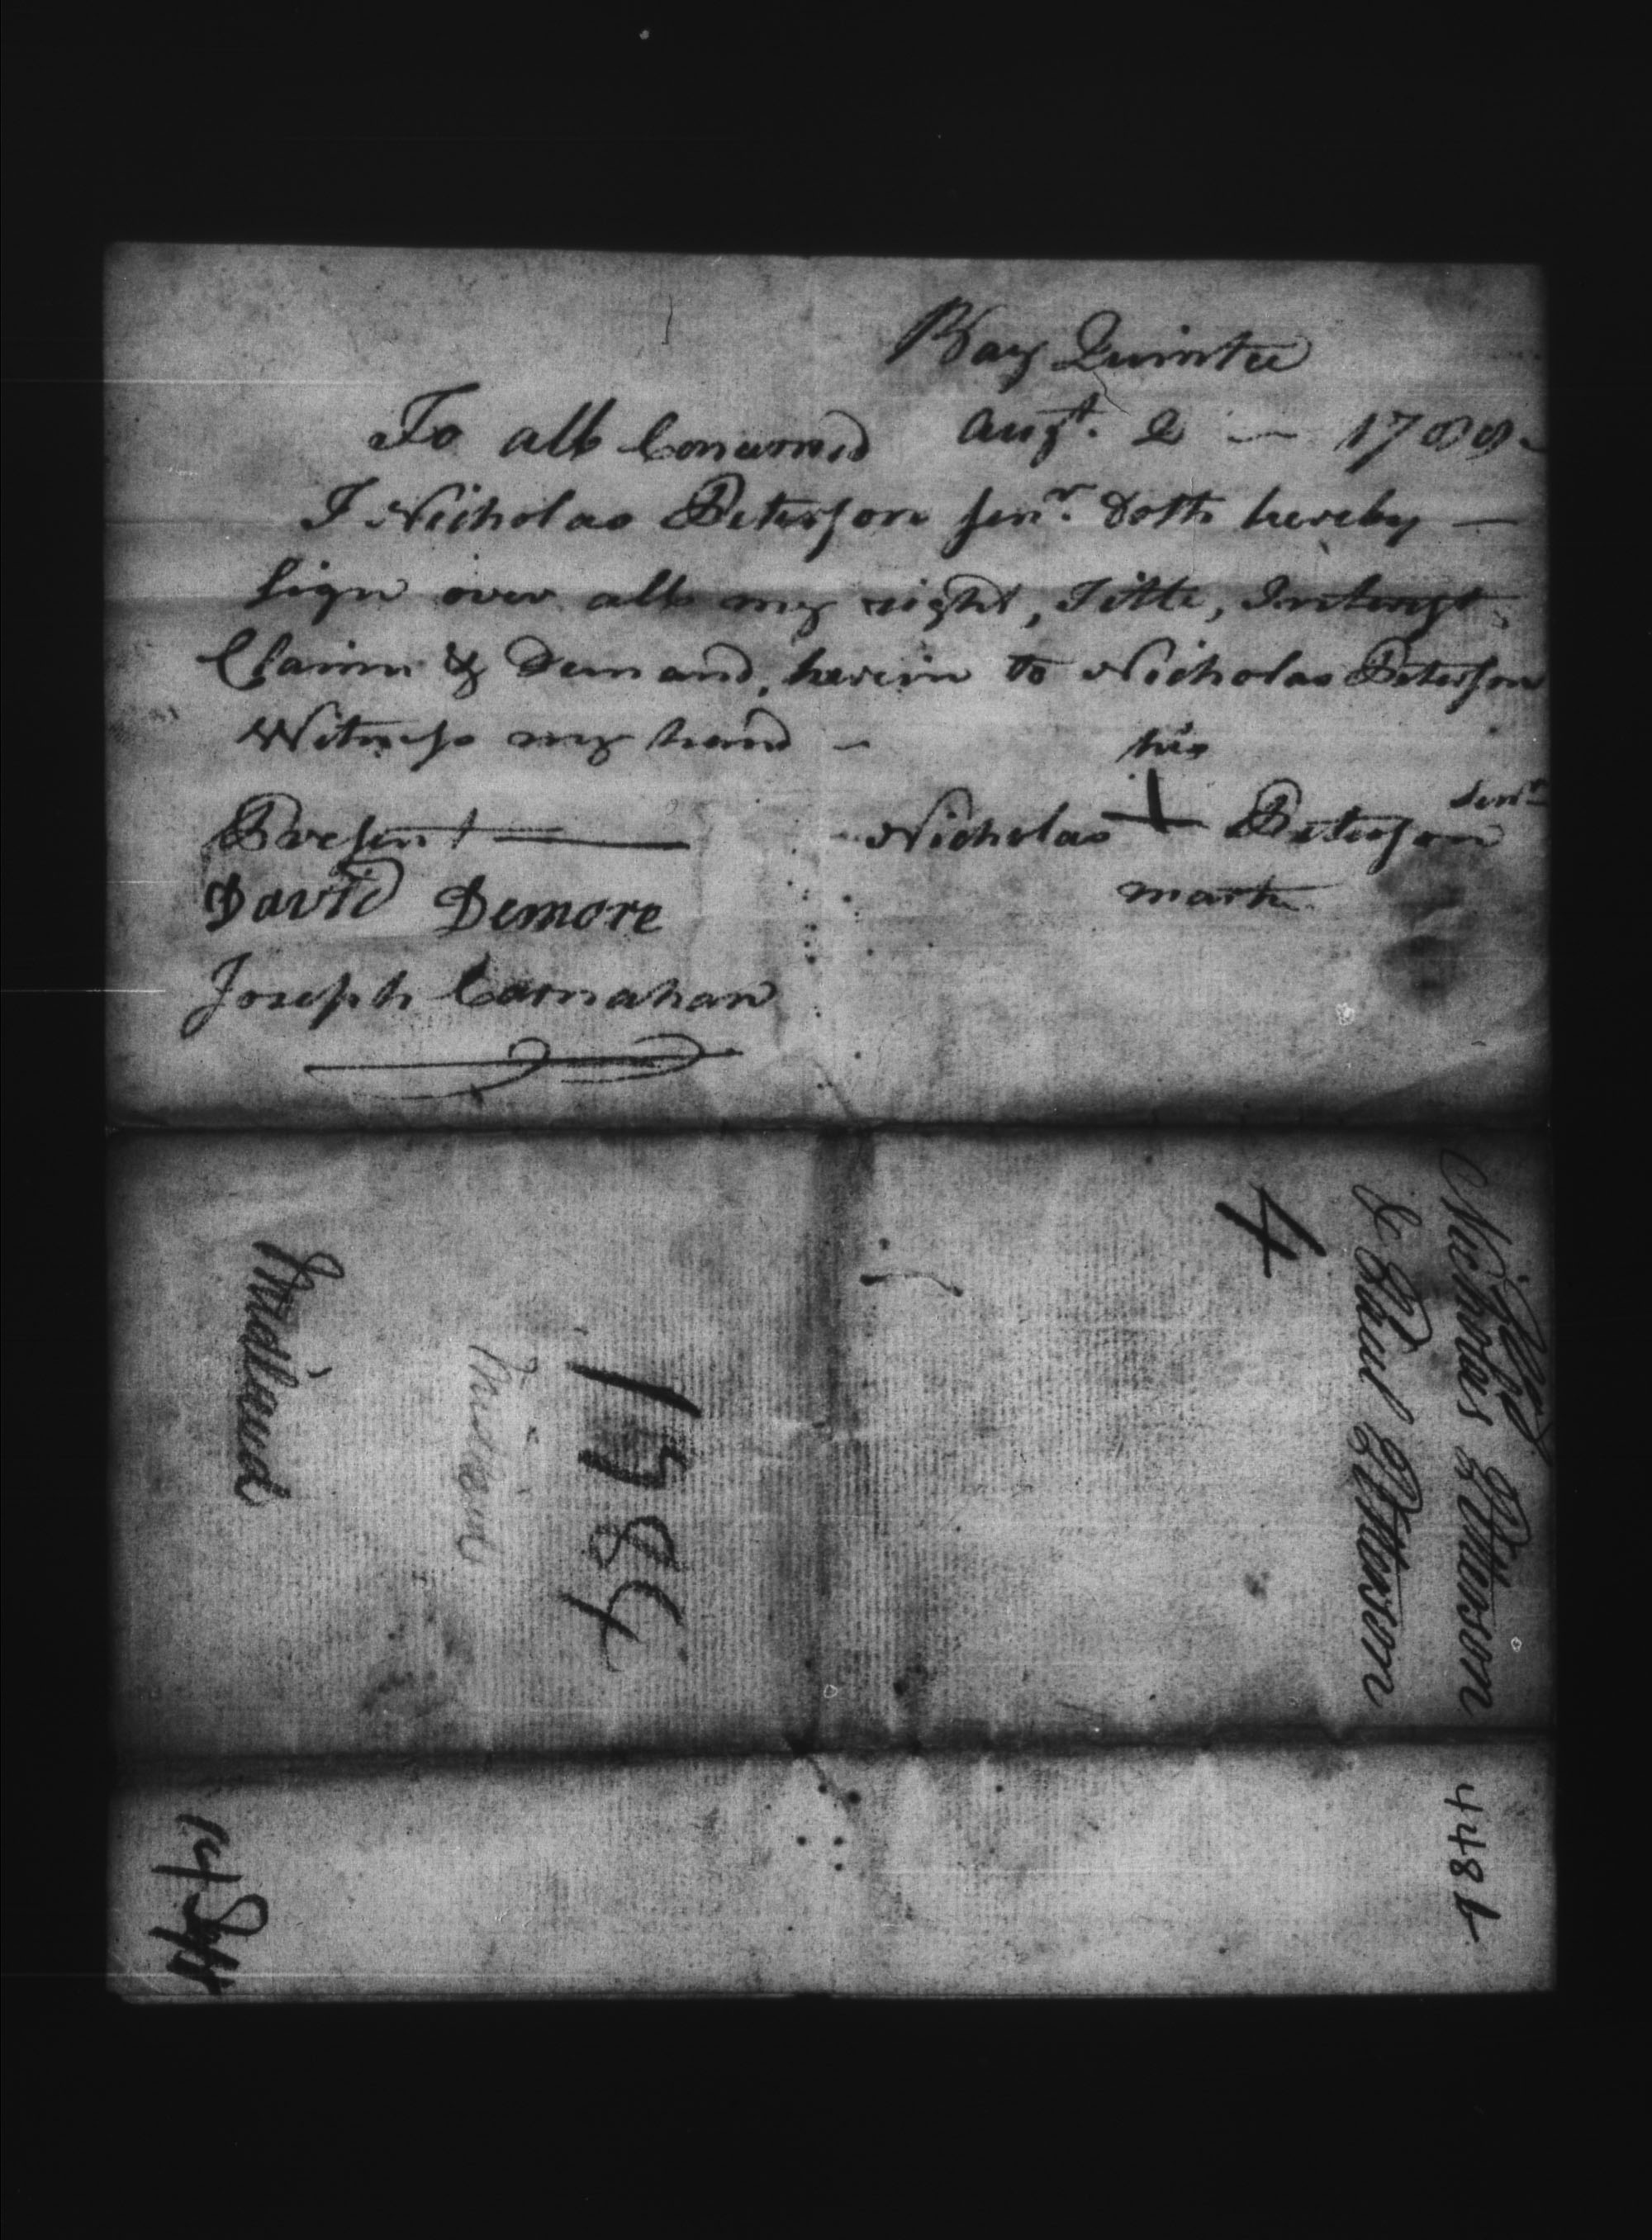 Bay Quintee
To all Concerned Augt. 2 — 1788
I Nicholas Peterson senr. doth hereby —
sign over all my right, Title, Interest
Claim & Demand, herein to Nicholas Peterson
Witness my hand —
his
Present
Nicholas + Peterson senr
mark
David Demore
Joseph Carnahan
Nicholas Peterson
& Paul Peterson
4
1784
Midland
Midland